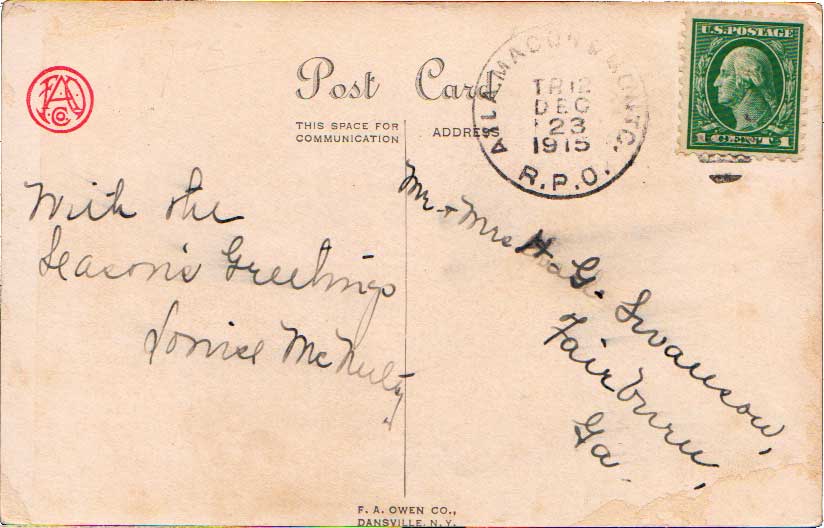 Post Card
THIS SPACE FOR
COMMUNICATION
ADDRESS
With the
Season's Greetings
Louise McNulty
Mr + Mrs H. G. Swanson,
Fairburn,
Ga.
TR 12
DEC
23
1915
R.P.O.
U.S. POSTAGE
1 CENT 1
F. A. OWEN CO.,
DANSVILLE, N.Y.